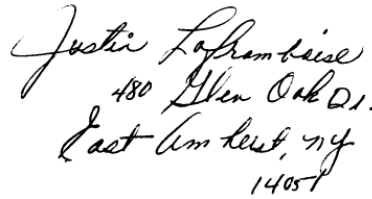 Justin Laframboise
480 Glen Oak Dr.
East Amherst, NY
14051